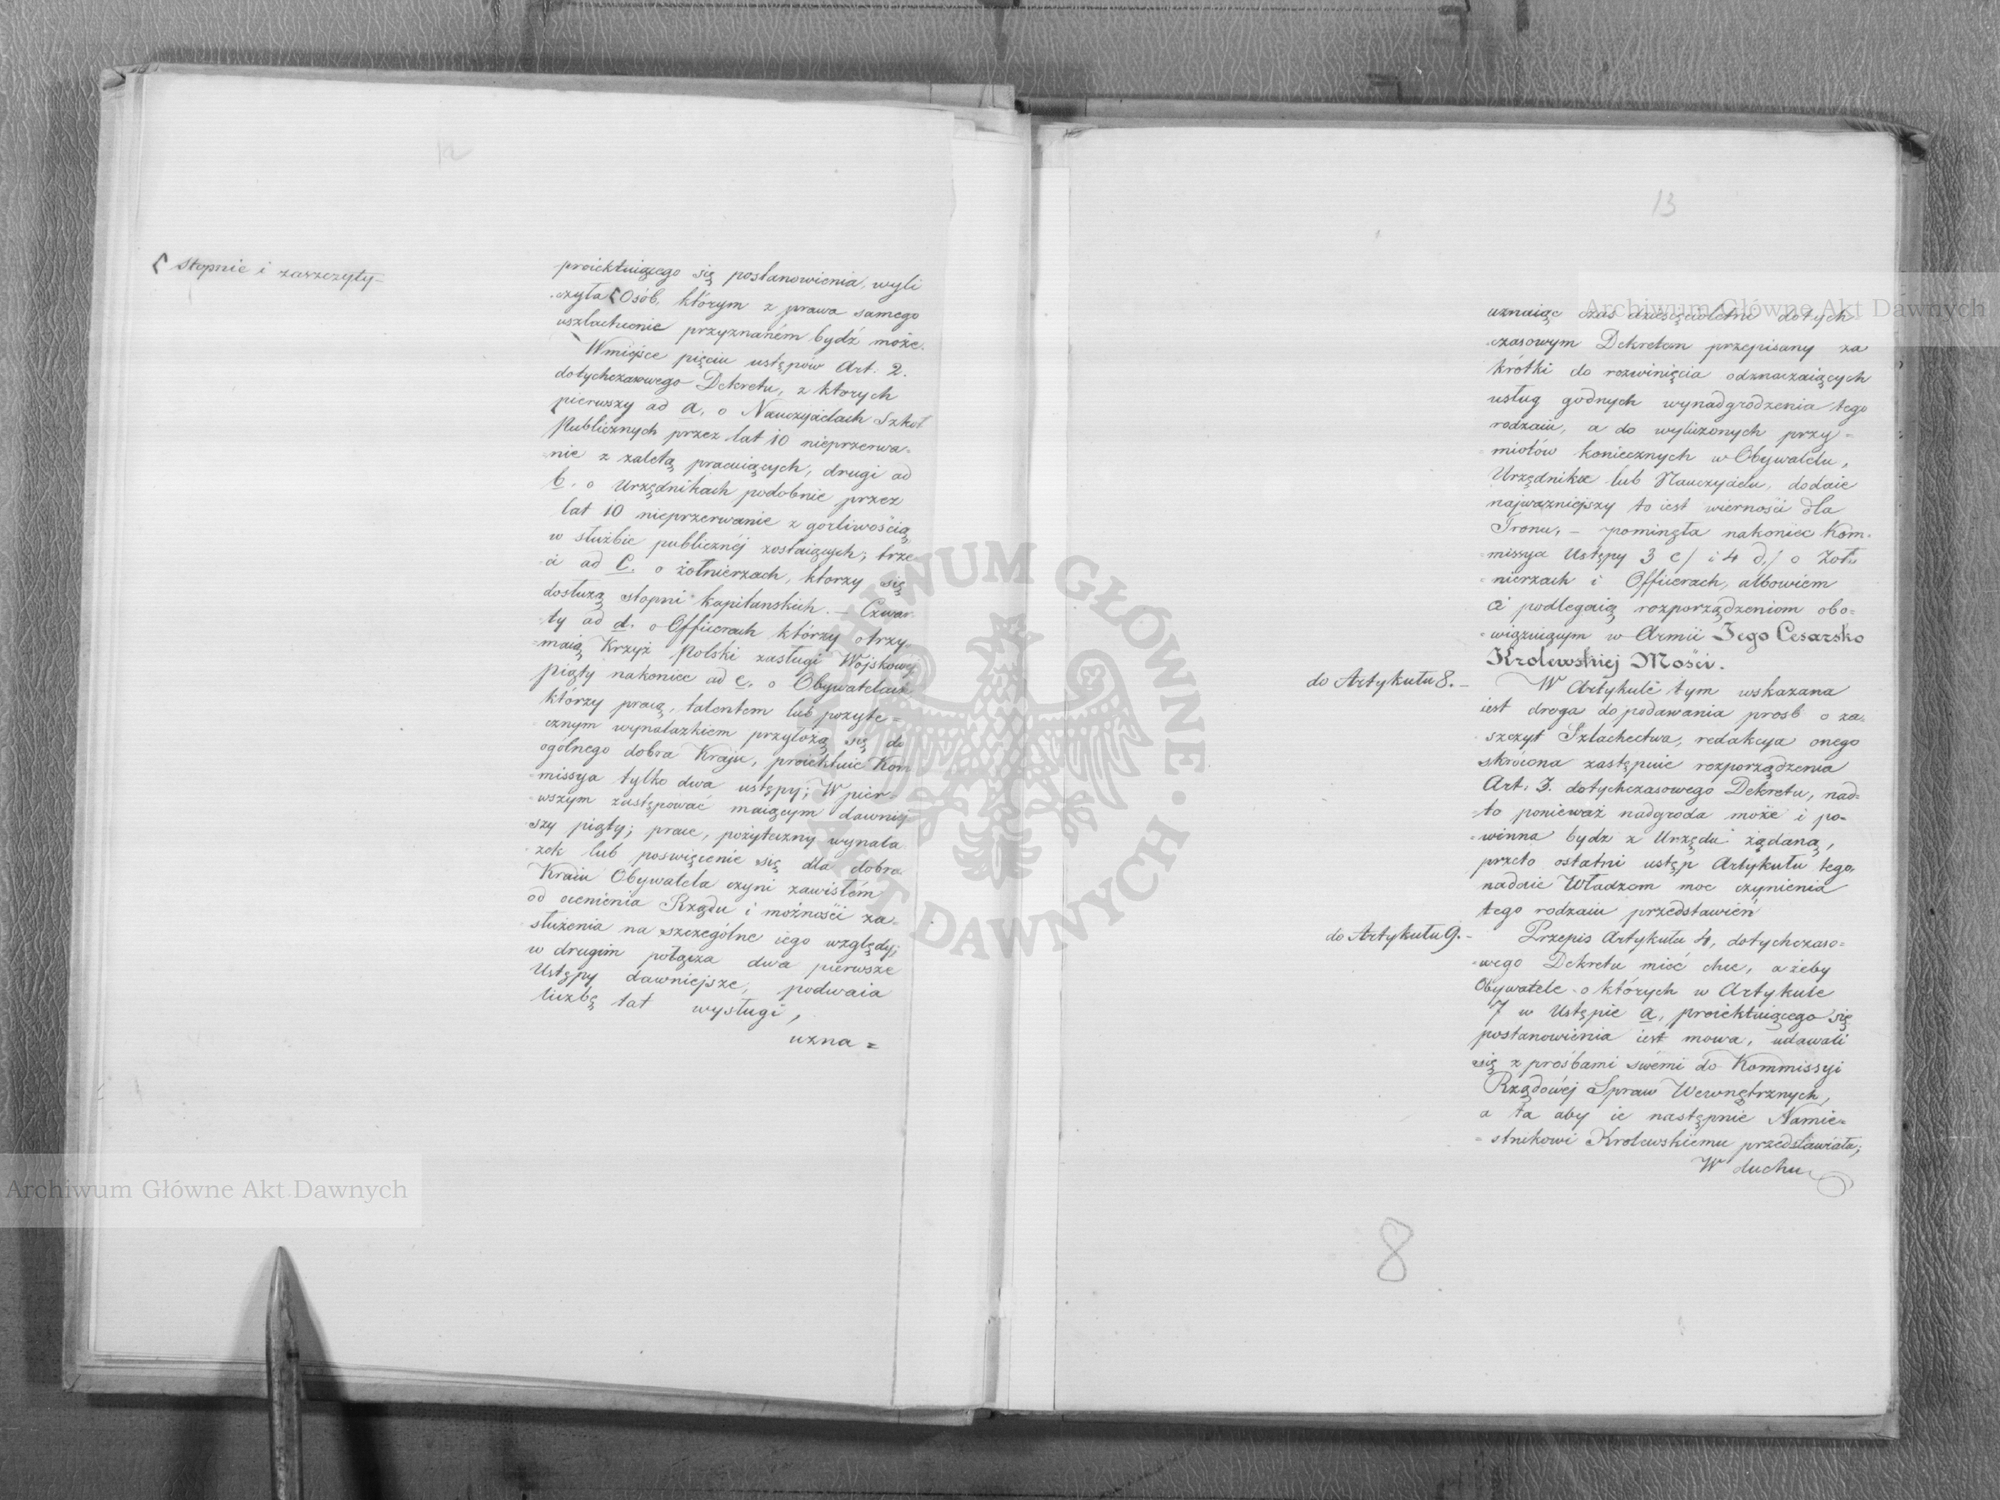 12
stopnie i zaszczyty
proiektuiącego się postanowienia, wyli
czyła Osób, którym z prawa samego
uszlachcenie przyznaném bydź może.
W mieysce pięciu ustępów Art. 2.
dotychczasowego Dekretu, z ktorych
pierwszy ad a. o Nauczycielach Szkół
Publicznych przez lat 10 nieprzerwa=
nie z zaletą pracuiących, drugi ad
b. o Urzędnikach podobnie przez
lat 10 nieprzerwanie z gorliwością
w służbie publicznéj zostaiących, trze
ci ad c. o żołnierzach, ktorzy się
dosłużą stopni kapitanskich. — Czwar
ty ad d. o Officerach którzy otrzy
maią Krzyż Polski zasługi Wojskowéj
piąty nakoniec ad e. o Obywatelach
którzy pracą, talentem lub pożyte=
cznym wynalazkiem przyłożą się do
ogólnego dobra Kraju, proiektuie Kom
missya tylko dwa ustępy; W pier=
wszym zastępować maiącym dawniéj
szy piąty; prace, pożyteczny wynala
zek lub poswięcenie się dla dobra
Kraiu Obywatela czyni zawisłém
od ocenienia Rządu i możności za=
służenia na szczególne iego względy;
w drugim połącza dwa pierwsze
Ustępy dawniejsze, podwaia
liczbę lat wysługi,
uzna=
13
uznaiąc czas dziesięcioletni dotych
czasowym Dekretem przepisany za
krótki do rozwinięcia odznaczaiących
usług godnych wynadgrodzenia tego
rodzaiu, a do wyliczonych przy=
miotów koniecznych w Obywatelu,
Urzędniku lub Nauczycielu, dodaie
najważniejszy to iest wierności dla
Tronu, — pominęła nakoniec Kom=
missya Ustępy 3 c/ i 4 d/ o Żoł=
nierzach i Officerach, albowiem
ci podlegaią rozporządzeniom obo=
wiązuiącym w Armii Jego Cesarsko
Krolewskiej Mości.
do Artykułu 8.
W Artykule tym wskazana
iest droga do podawania prosb o za=
szczyt Szlachectwa, redakcya onego
skrócona zastępuie rozporządzenia
Art. 3. dotychczasowego Dekretu, nad=
to ponieważ nadgroda może i po=
winna bydź z Urzędu żądaną,
przeto ostatni ustęp Artykułu tego
nadaie Władzom moc czynienia
tego rodzaiu przedstawień
do Artykułu 9.
Przepis Artykułu 4, dotychczaso=
wego Dekretu mieć chce, ażeby
Obywatele o których w Artykule
7 w Ustępie a, proiektuiącego się
postanowienia iest mowa, udawali
się z prośbami swémi do Kommissyi
Rządowéj Spraw Wewnętrznych,
a ta aby ie następnie Namie=
stnikowi Krolewskiemu przedstawiała;
W duchu
8
Archiwum Główne Akt Dawnych
Archiwum Główne Akt Dawnych
ARCHIWUM GŁÓWNE · AKT DAWNYCH ·